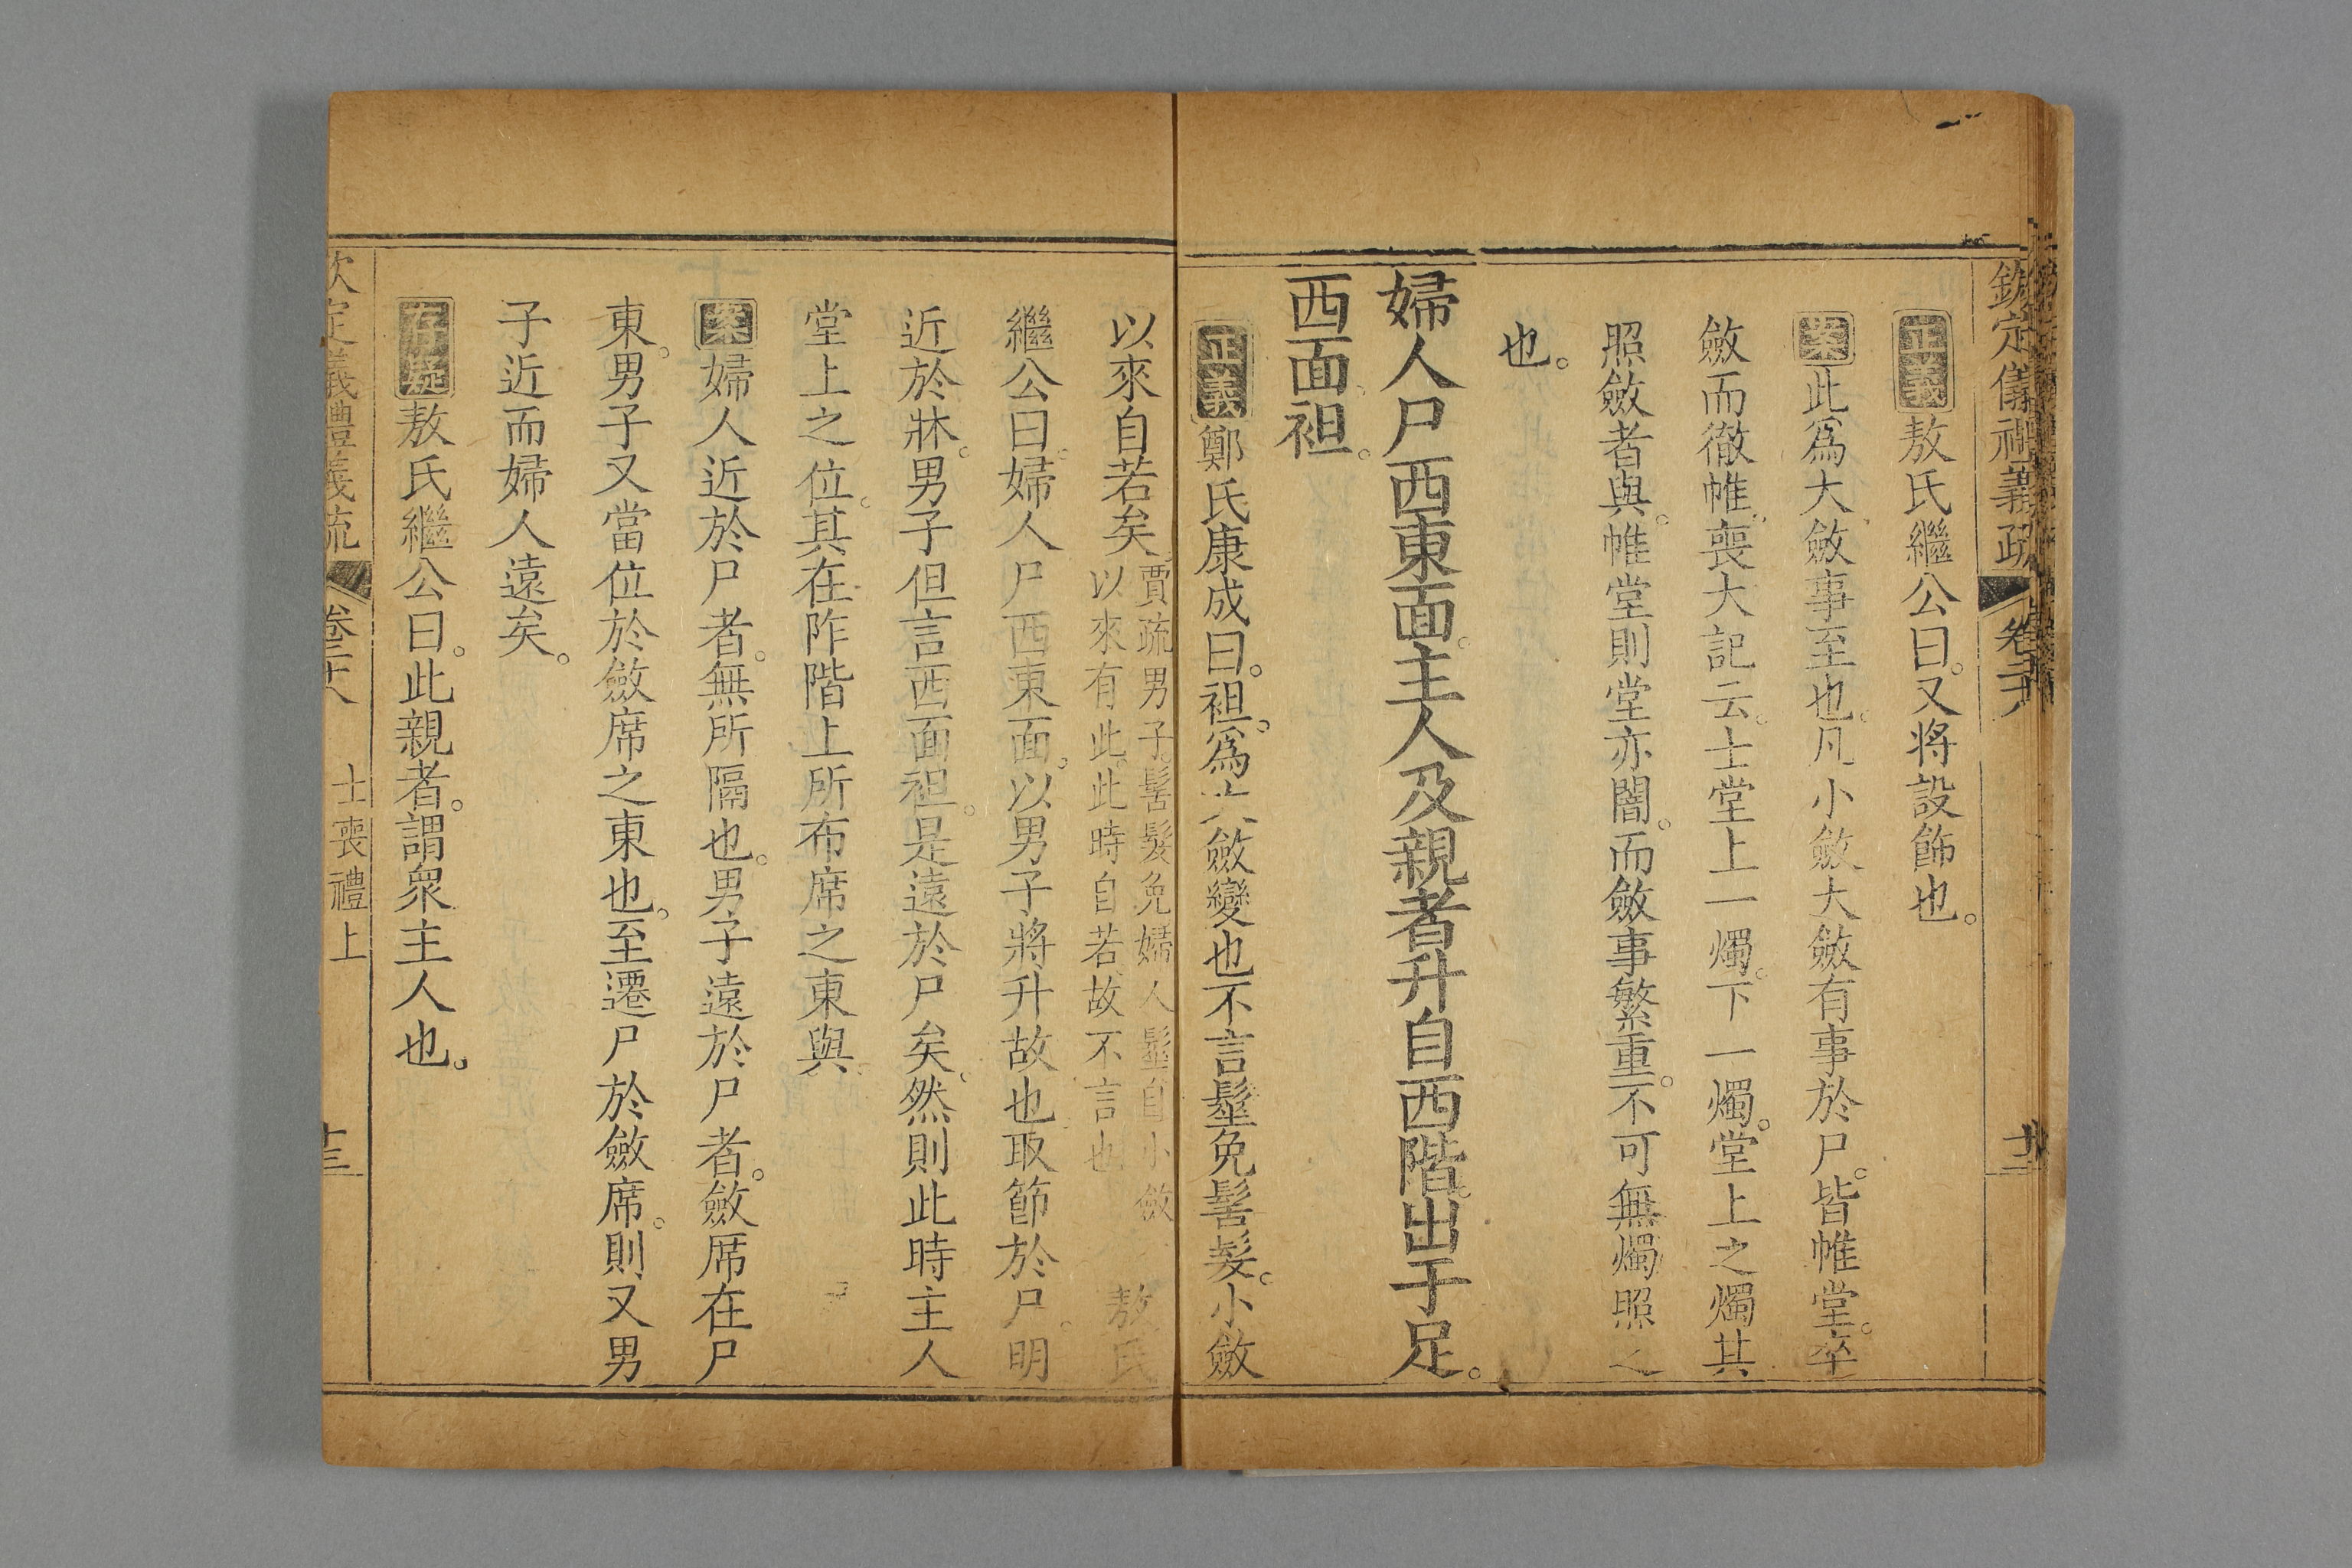 欽定儀禮義疏 卷二十八
正義敖氏繼公曰。又將設飾也。
案此爲大斂事至也。凡小斂大斂有事於尸。皆帷堂。卒
斂而徹帷。喪大記云。士堂上一燭。下一燭。堂上之燭其
照斂者與。帷堂則堂亦闇。而斂事繁重。不可無燭照之
也。
婦人尸西東面。主人及親者升自西階。出于足。
西面袒。
正義鄭氏康成曰。袒。爲大斂變也不言髽免髺髮。小斂
以來自若矣賈疏男子髺髮免婦人髽自小斂
以來有此。此時自若故不言也 敖氏
繼公曰。婦人尸西東面。以男子將升故也取節於尸。明
近於牀。男子但言西面袒。是遠於尸矣。然則此時主人
堂上之位。其在阼階上所布席之東與。
案婦人近於尸者。無所隔也。男子遠於尸者。斂席在尸
東。男子又當位於斂席之東也。至遷尸於斂席。則又男
子近而婦人遠矣。
存疑敖氏繼公曰。此親者。謂衆主人也。
欽定義禮義疏 卷二十八 士喪禮上 十三